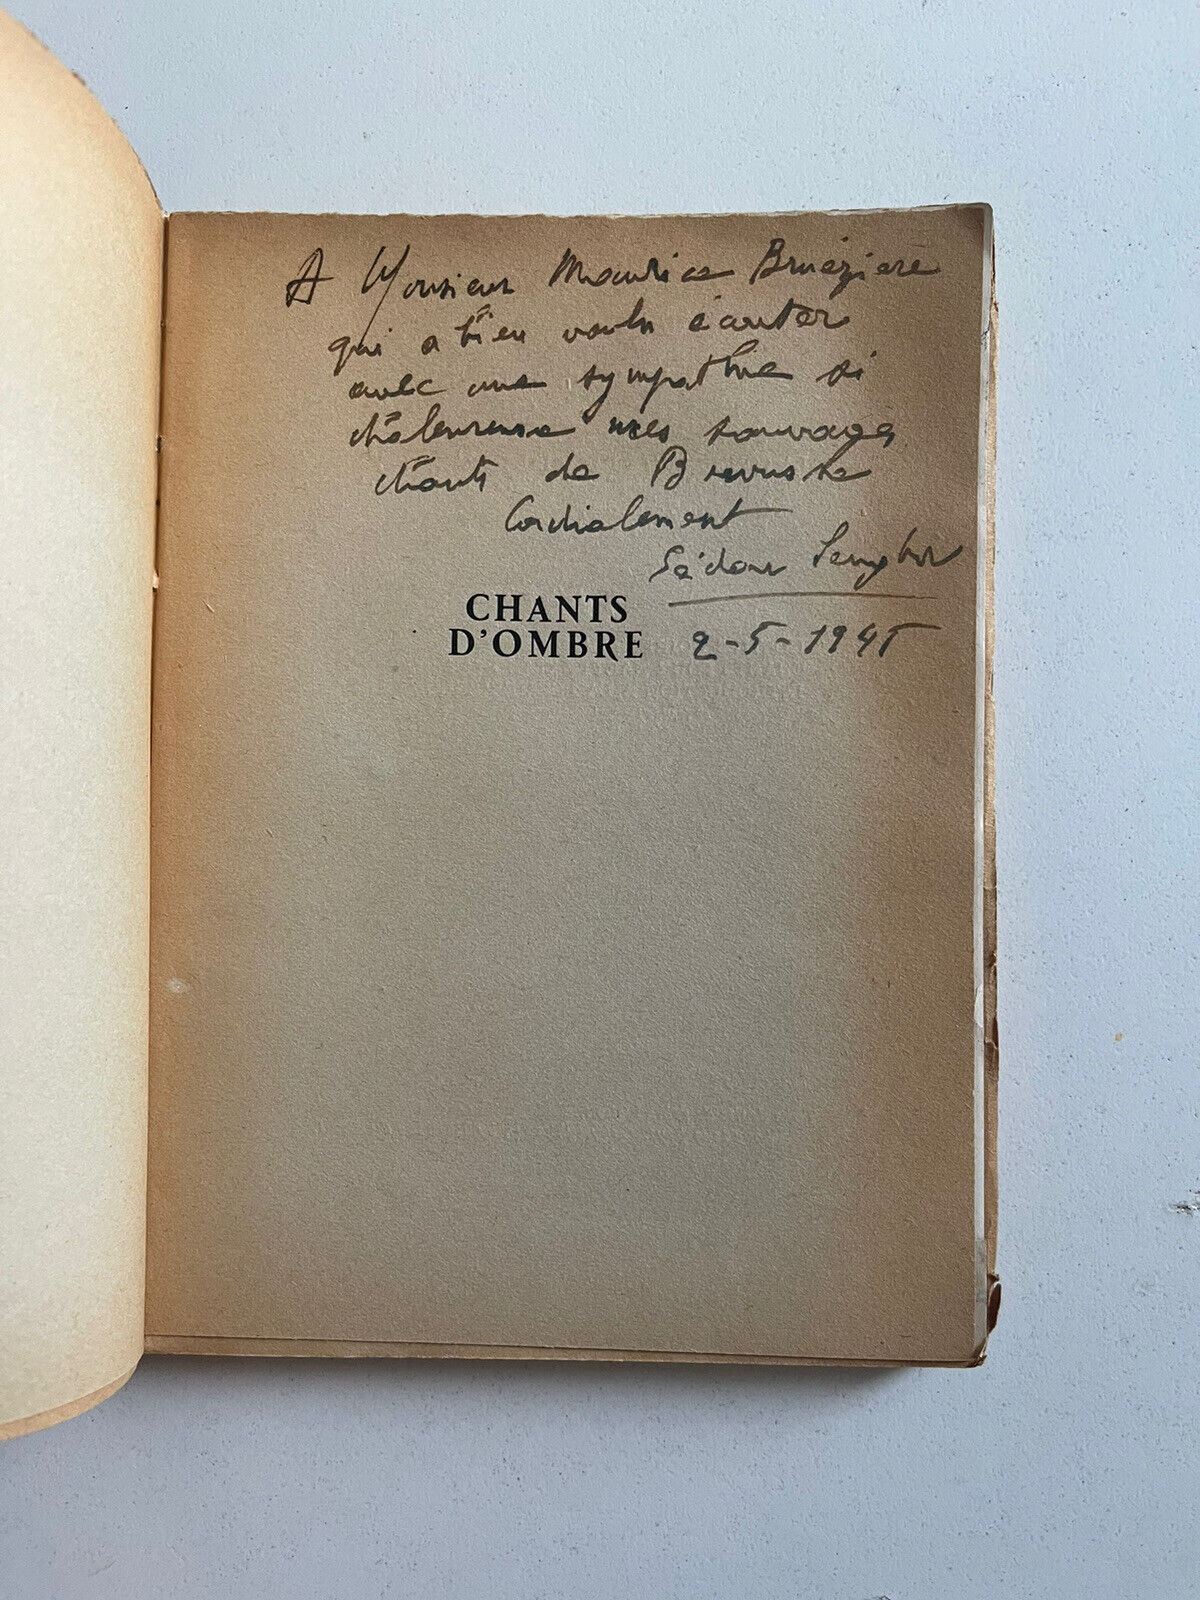 A Monsieur Maurice Bruézière
qui a bien voulu écouter
avec une sympathie si
chaleureuse mes sauvages
chants de Brousse
Cordialement
Sédar Senghor
CHANTS
D'OMBRE
2-5-1945